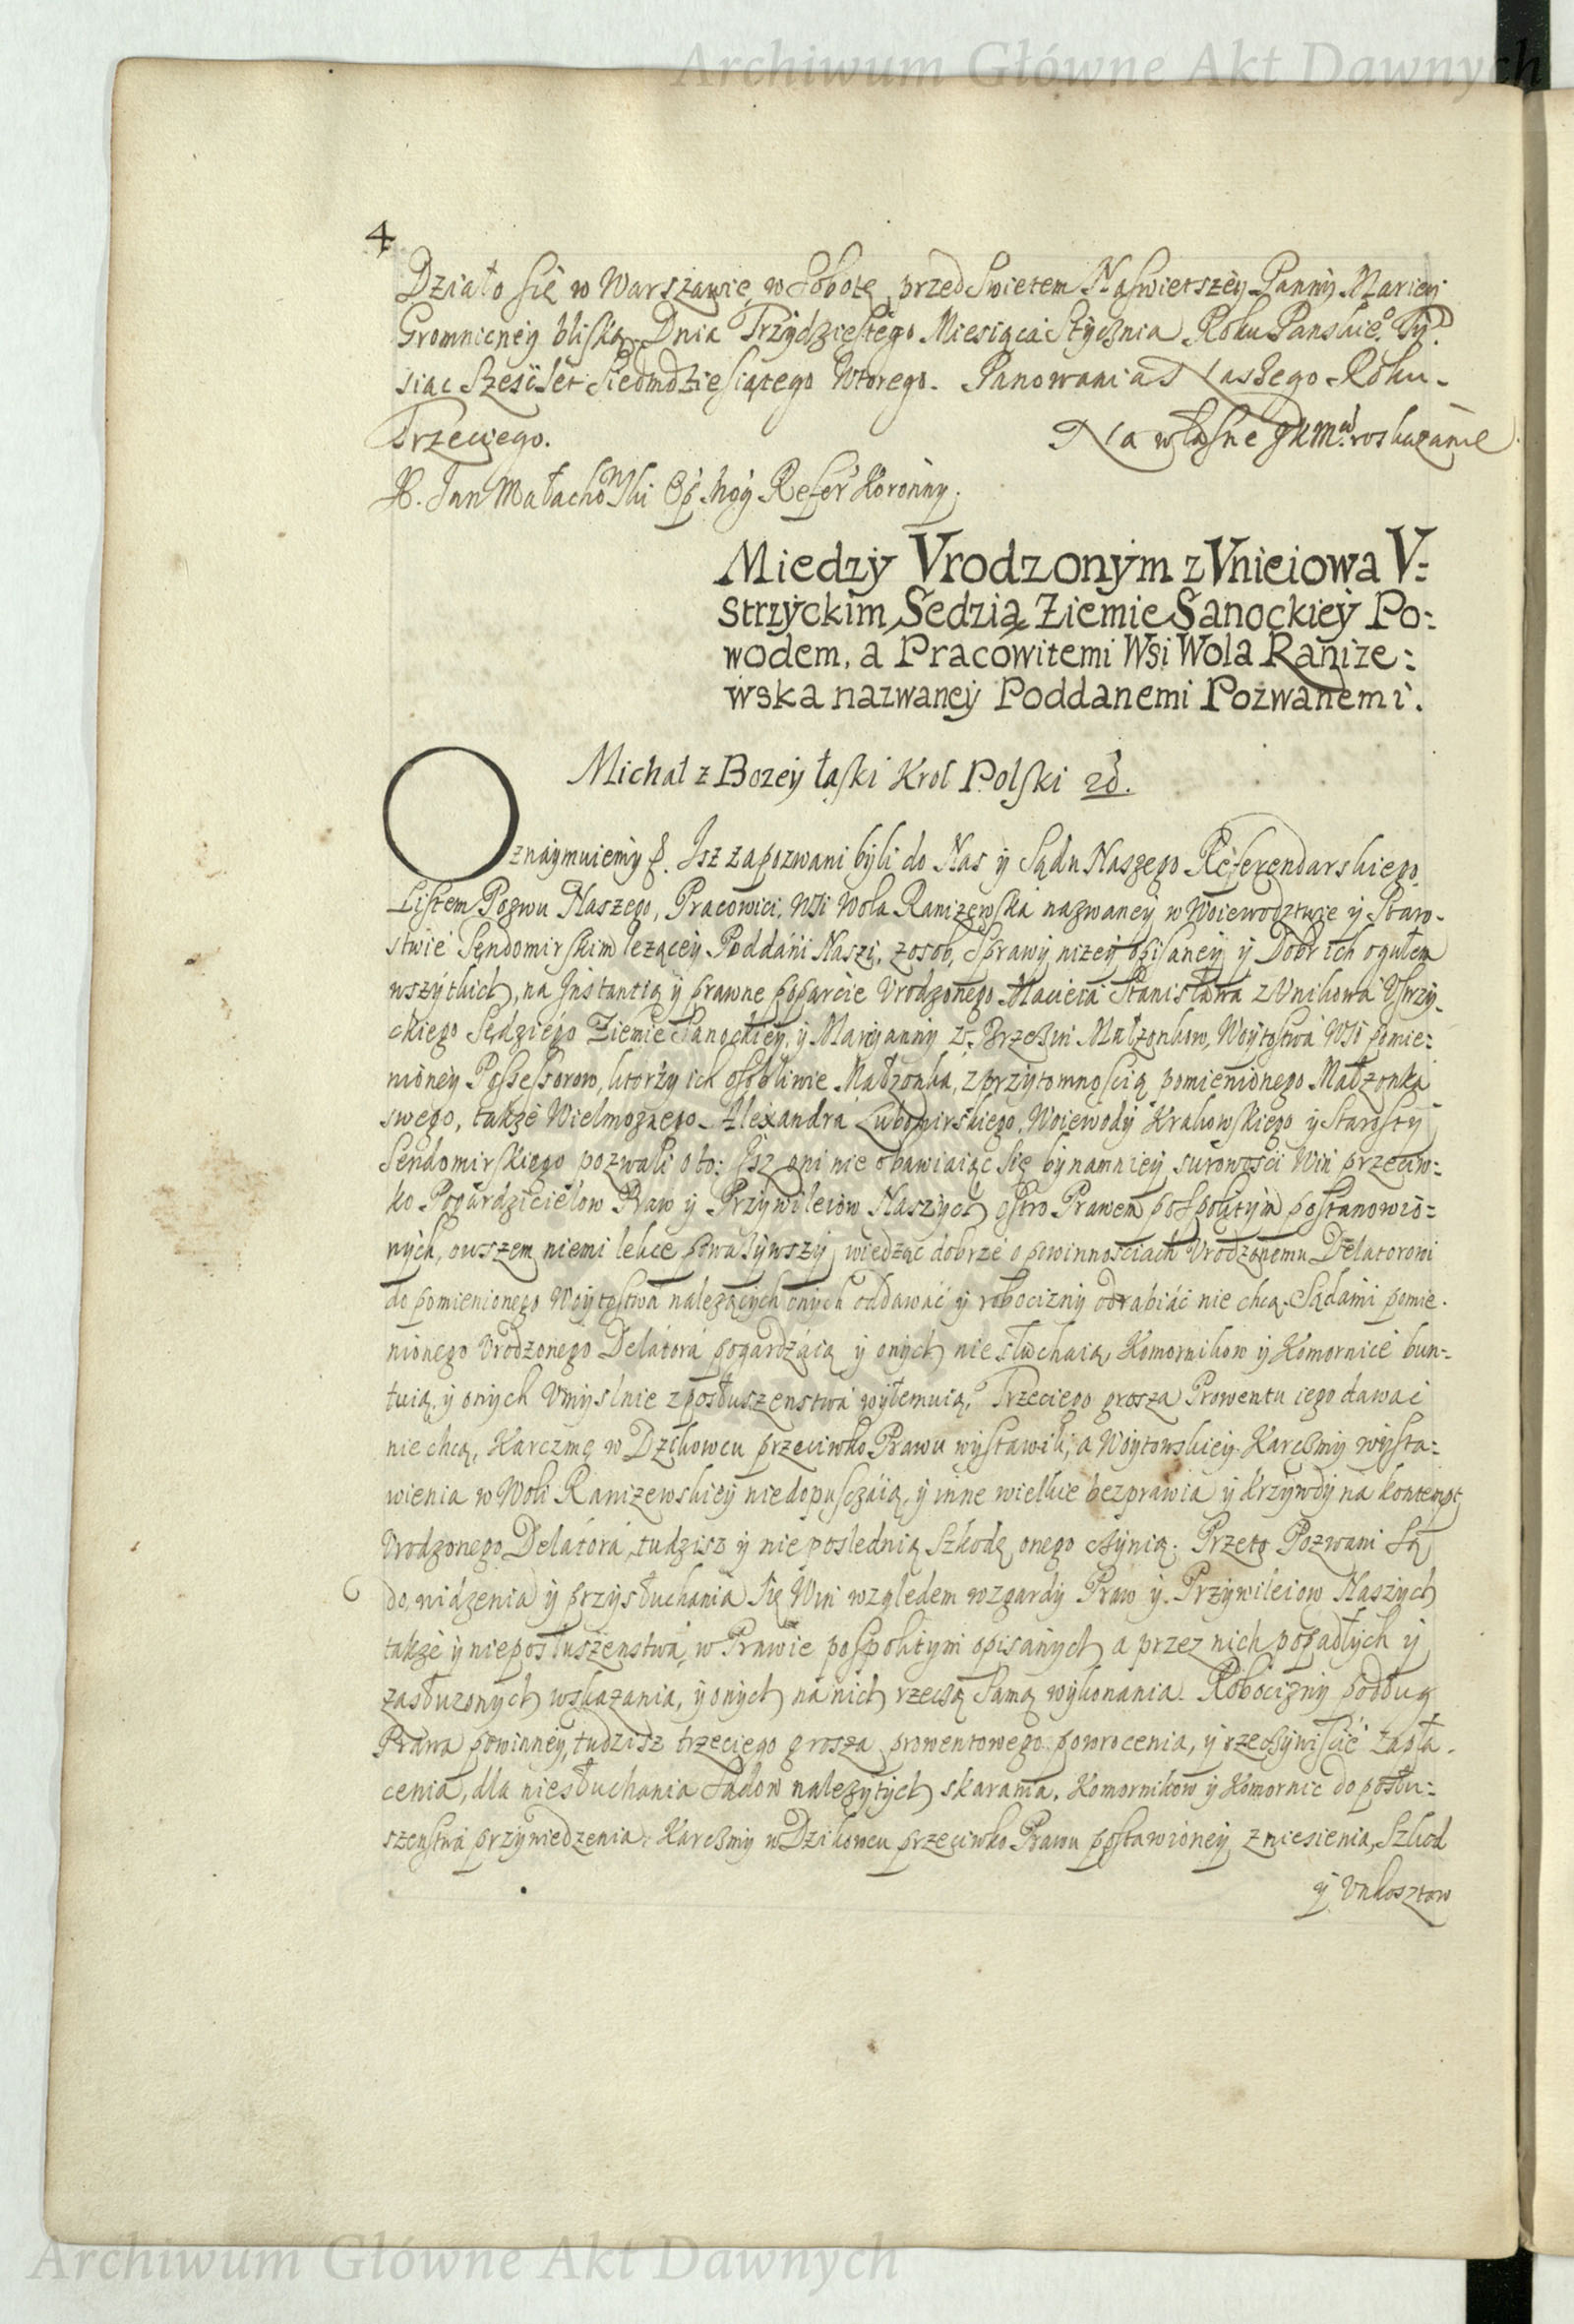 Archiwum Główne Akt Dawnych
4
Działo się w Warszawie, w Sobotę przed Swietem Naswietszey Panny Mariey
Gromniczney bliską, Dnia Trzydziestego Miesiąca Stycznia Roku Panskie⁰ Ty-
siąc Szescset Siedmdziesiątego Wtorego. Panowania Naszego Roku
Trzeciego.
Na własne JKMci roskazanie
X. Jan Małachowski Refer Koronny.
Miedzy Vrodzonym z Vnieiowa V=
strzyckim Sedzią Ziemie Sanockiey Po=
wodem, a Pracowitemi Wsi Wola Ranize=
wska nazwaney Poddanemi Pozwanemi.
Michał z Bozey łaski Krol Polski
Oznaymuiemy. Isz zapozwani byli do Nas y Sądu Naszego Referendarskiego
Listem Pozwu Naszego, Pracowici, Wsi Wola Ranizewska nazwaney w Woiewodztwie y Staro-
stwie Sendomirskim lezącey Poddani Naszi, z osob, sprawy nizey opisaney y Dobr ich ogułem
wszytkich, na Instantią y prawne poparcie Vrodzonego Macieia Stanisława z Vnikowa Vstrzy-
ckiego Sędziego Ziemie Sanockiey, y Maryanny z Brzezin Małzonkow, Woytostwa Wsi pomie=
nioney Possessorow, ktorzy ich osobliwie Małzonka, z przytomnoscią pomienionego Małzonka
swego, takze Wielmoznego Alexandra Lubomirskiego, Woiewody Krakowskiego y Starosty
Sendomirskiego pozwali o to: Isz oni nie obawiaiąc się bynamniey surowosci Win przeciw=
ko Pogardzicielow Praw y Przywileiow Naszych ostro Prawem pospolitym postanowio=
nych, owszem niemi lekce powazywszy, wiedząc dobrze o powinnosciach Vrodzonemu Delatorowi
do pomienionego Woytostwa nalezących onych oddawać y robocizny odrabiać nie chcą. Sądami pomie-
nionego Vrodzonego Delatora pogardzaią y onych nie słuchaią, Komornikow y Komornice bun-
tuią, y onych Vmyslnie z posłuszenstwa wyłemuią, Trzeciego grosza Prowentu iego dawac
nie chcą, Karczmę w Dzikowcu przeciwko Prawu wystawili, a Woytowskiey Karczmy wysta=
wienia w Woli Ranizewskiey niedopusczaią, y inne wielkie bezprawia y krzywdy na kontempt
Vrodzonego Delatora, tudzisz y nieposlednią Szkodę onego czynią. Przeto Pozwani są
do widzenia y przysłuchania się Win względem wzgardy Praw y Przywileiow Naszych
takze y nieposłuszenstwa, w Prawie pospolitym opisanych a przez nich popadłych y
zasłuzonych wskazania, y onych na nich rzeczą samą wykonania. Robocizny podług
Prawa powinney, tudzisz trzeciego grosza prowentowego powrocenia, y rzeczywiscie zapła-
cenia, dla niesłuchania Sądow nalezytych skarania. Komornikow y Komornic do posłu=
szenstwa przywiedzenia. Karczmy w Dzikowcu przeciwko Prawu postawioney zniesienia, Szkod
y Vnkosztow
Archiwum Główne Akt Dawnych